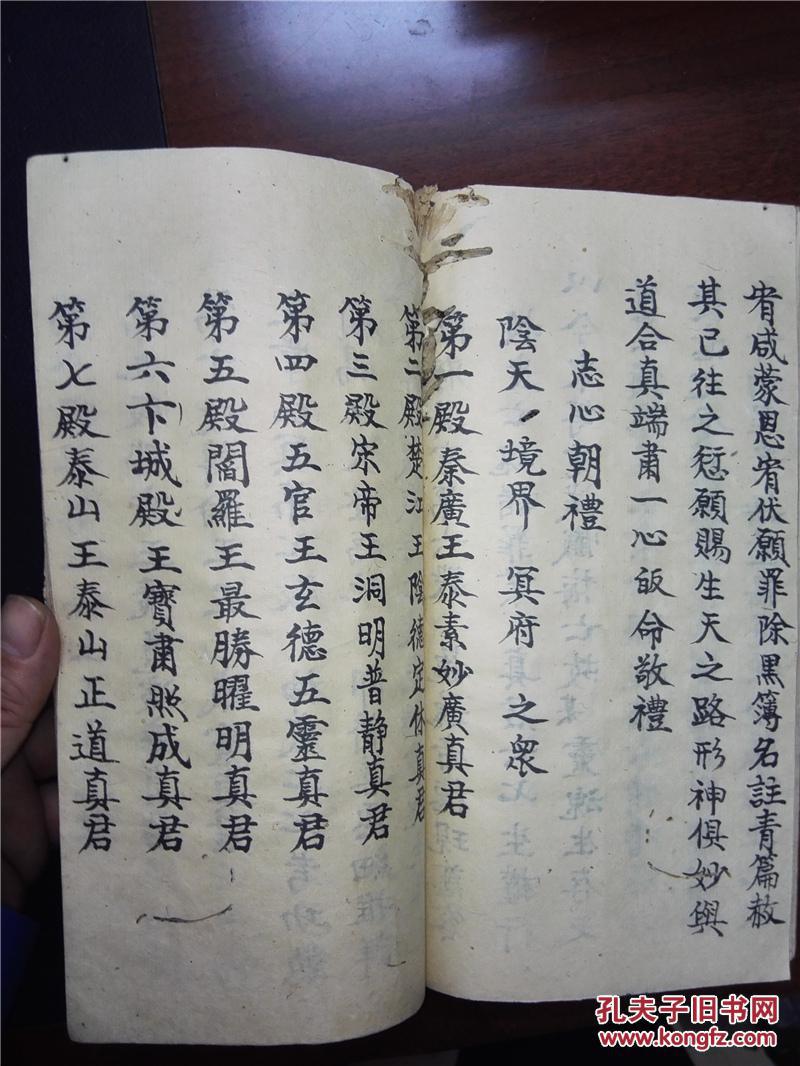 宥咸蒙恩宥伏願罪除黑簿名註青篇赦
其已往之愆願賜生天之路形神俱妙與
道合真端肅一心皈命敬禮
志心朝禮
陰天境界冥府之衆
第一殿秦廣王泰素妙廣真君
第二殿楚江王陰德定休真君
第三殿宋帝王洞明普静真君
第四殿五官王玄德五靈真君
第五殿閻羅王最勝曜明真君
第六卞城殿王寶肅熙成真君
第七殿泰山王泰山正道真君
孔夫子旧书网
www.kongfz.com